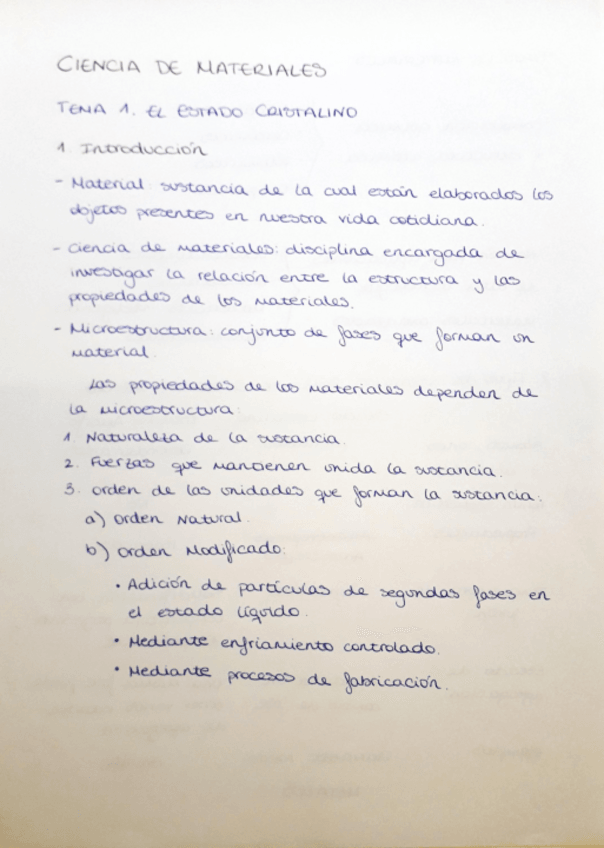 CIENCIA DE MATERIALES
TEMA 1. EL ESTADO CRISTALINO
1. Introducción
- Material: sustancia de la cual están elaborados los
objetos presentes en nuestra vida cotidiana.
- Ciencia de materiales: disciplina encargada de
investigar la relación entre la estructura y las
propiedades de los materiales.
- Microestructura: conjunto de fases que forman un
material.
Las propiedades de los materiales dependen de
la microestructura:
1. Naturaleza de la sustancia.
2. Fuerzas que mantienen unida la sustancia.
3. Orden de las unidades que forman la sustancia:
a) Orden Natural.
b) Orden Modificado:
• Adición de partículas de segundas fases en
el estado líquido.
• Mediante enfriamiento controlado.
• Mediante procesos de fabricación.